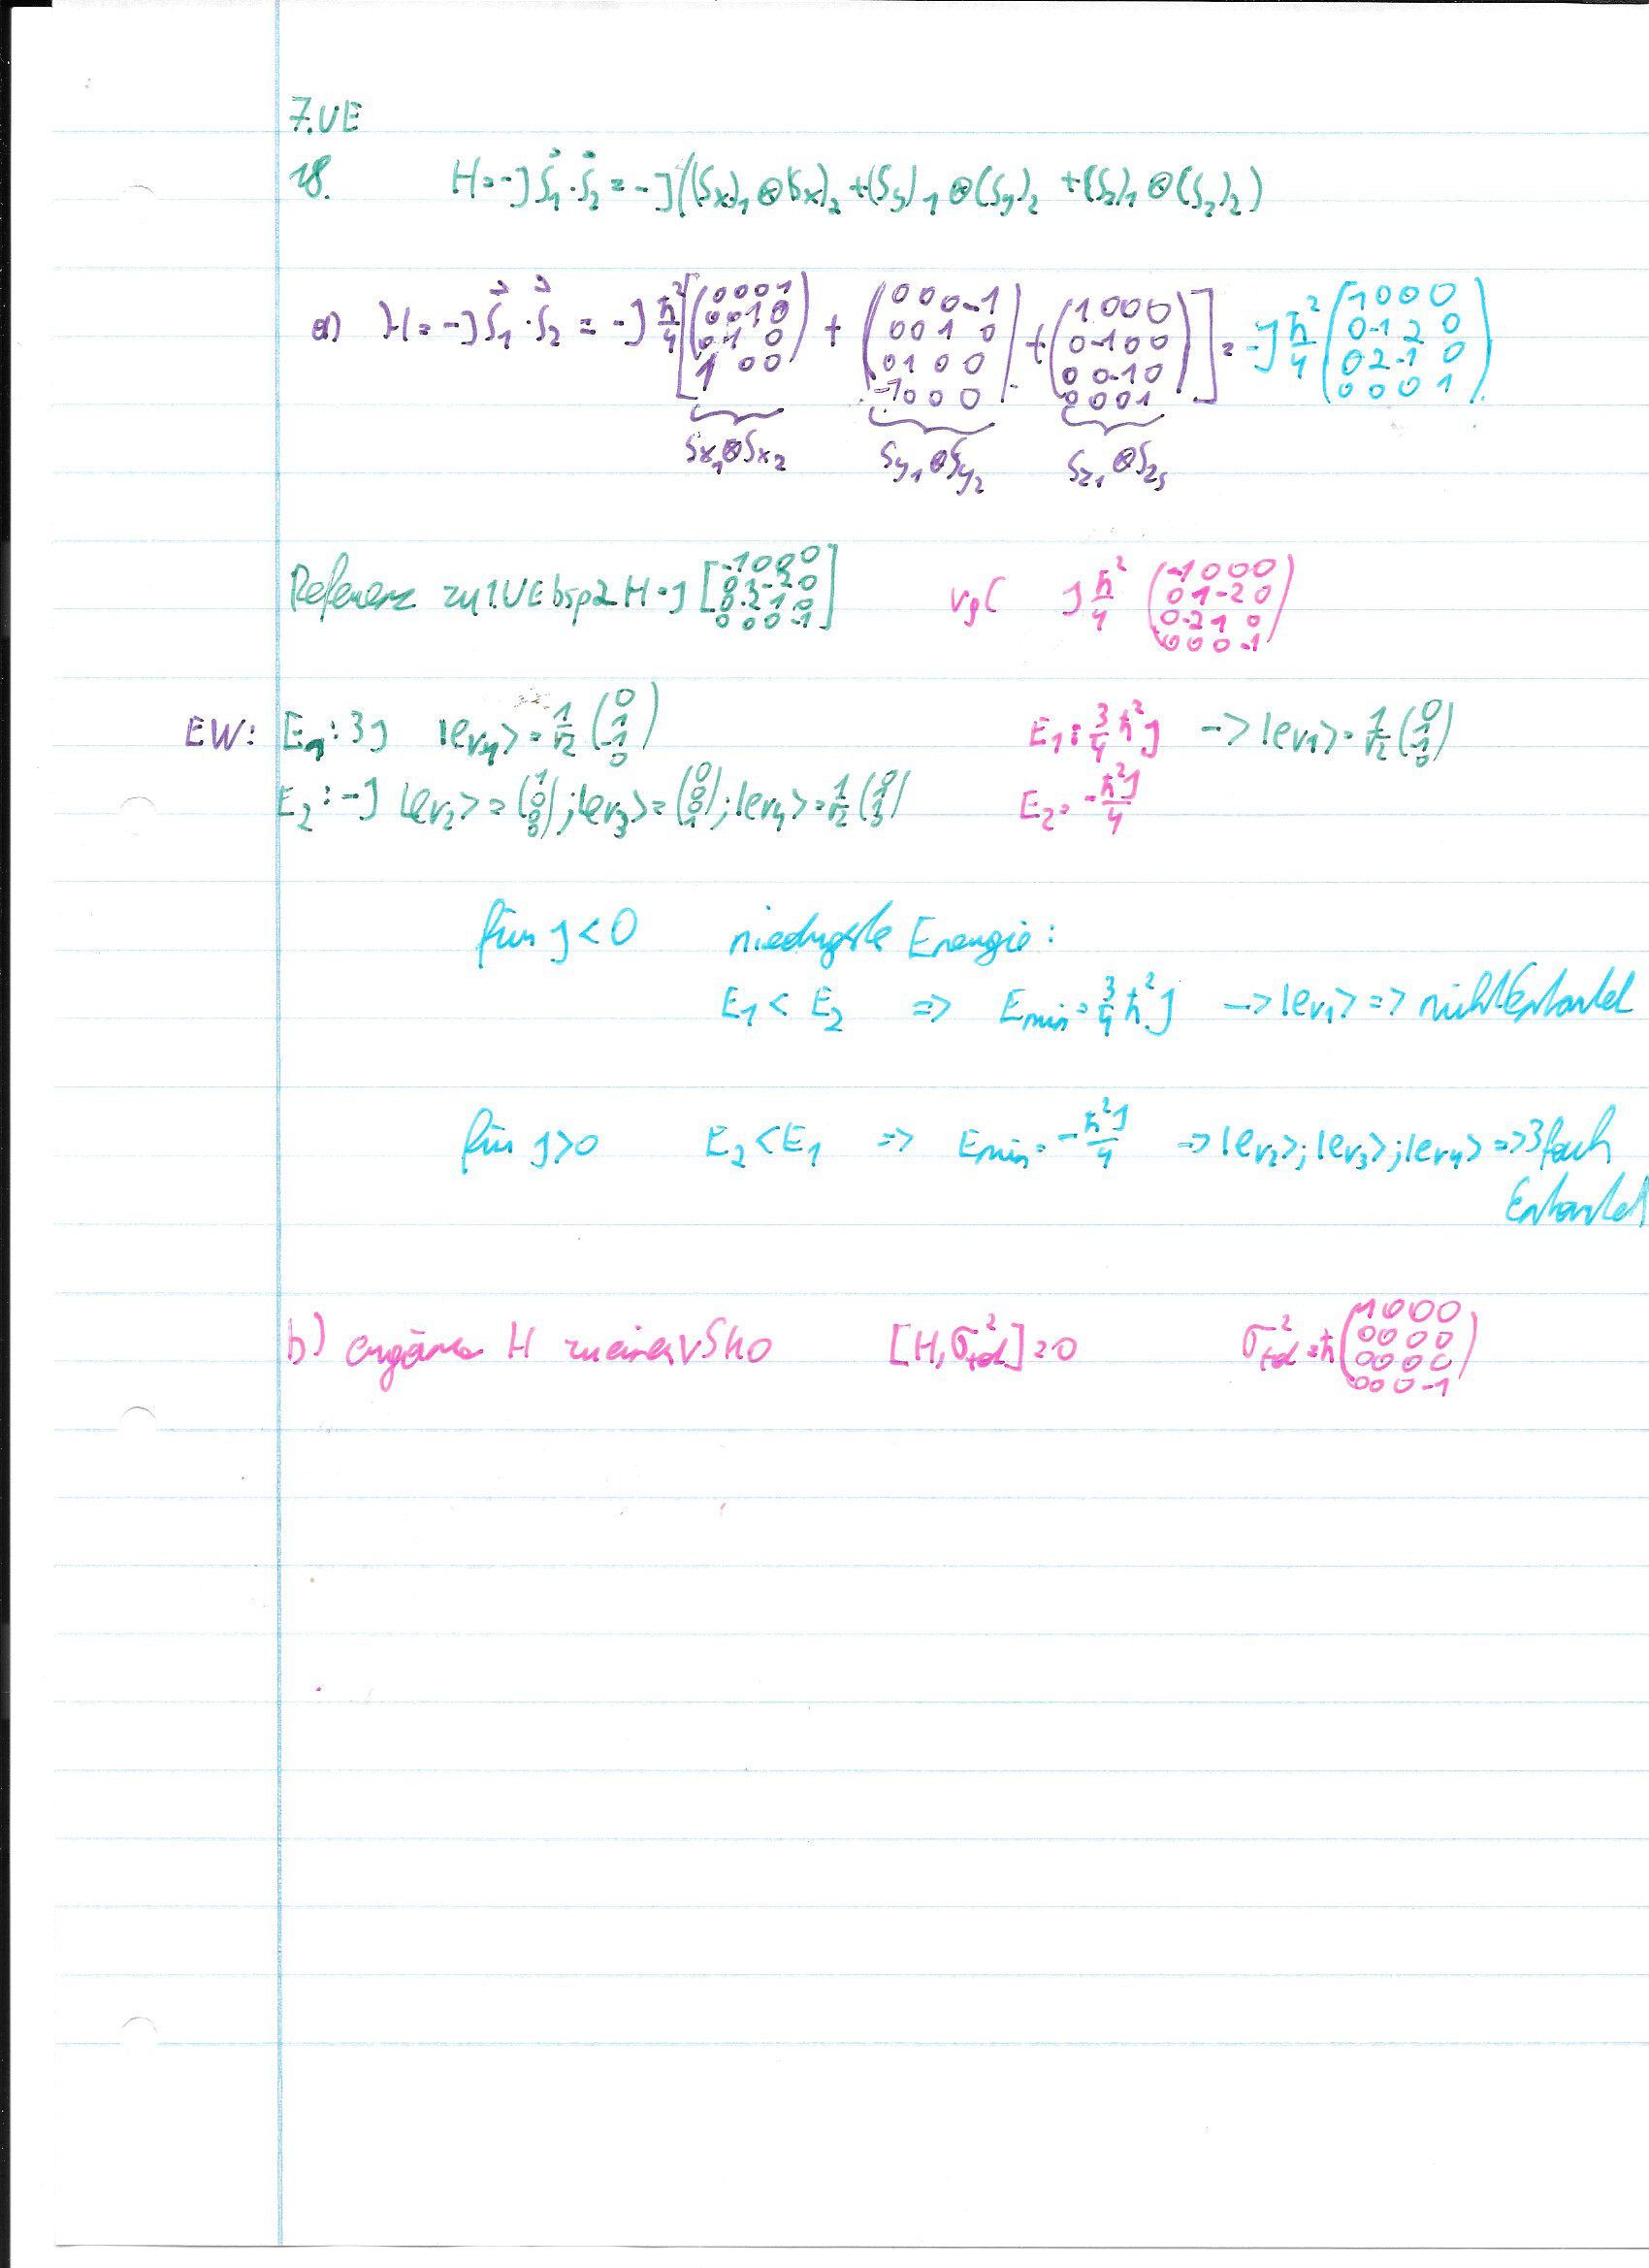 7.UE
18. H = -J S⃗₁ · S⃗₂ = -J((Sx)₁ ⊗ (Sx)₂ + (Sy)₁ ⊗ (Sy)₂ + (Sz)₁ ⊗ (Sz)₂)
a) H = -J S⃗₁ · S⃗₂ = -J ħ²/4 [ (0 0 0 1; 0 0 1 0; 0 1 0; 1 0 0) + (0 0 0 -1; 0 0 1 0; 0 1 0 0; -1 0 0 0) + (1 0 0 0; 0 -1 0 0; 0 0 -1 0; 0 0 0 1) ] = -J ħ²/4 (1 0 0 0; 0 -1 2 0; 0 2 -1 0; 0 0 0 1)
Sx₁⊗Sx₂ Sy₁⊗Sy₂ Sz₁⊗Sz₂
Referenz zu 1.UE bsp2 H = J [-1 0 0 0; 0 1 -2 0; 0 -2 1 0; 0 0 0 -1] vgl J ħ²/4 (-1 0 0 0; 0 1 -2 0; 0 -2 1 0; 0 0 0 -1)
EW: E₁: 3J |ev₁> = 1/√2 (0; 1; -1; 0) E₁: 3/4 ħ² J -> |ev₁> = 1/√2 (0; 1; -1; 0)
E₂: -J |ev₂> = (1; 0; 0; 0); |ev₃> = (0; 0; 0; 1); |ev₄> = 1/√2 (0; 1; 1; 0) E₂ = -ħ²J/4
für J < 0 niedrigste Energie:
E₁ < E₂ => Emin = 3/4 ħ² J -> |ev₁> => nicht Entartet
für J > 0 E₂ < E₁ => Emin = -ħ²J/4 -> |ev₂>; |ev₃>; |ev₄> => 3fach
Entartet
b) ergänze H zu einer vSkO [H, σ²tot] = 0 σ²tot = ħ (1 0 0 0; 0 0 0 0; 0 0 0 0; 0 0 0 -1)